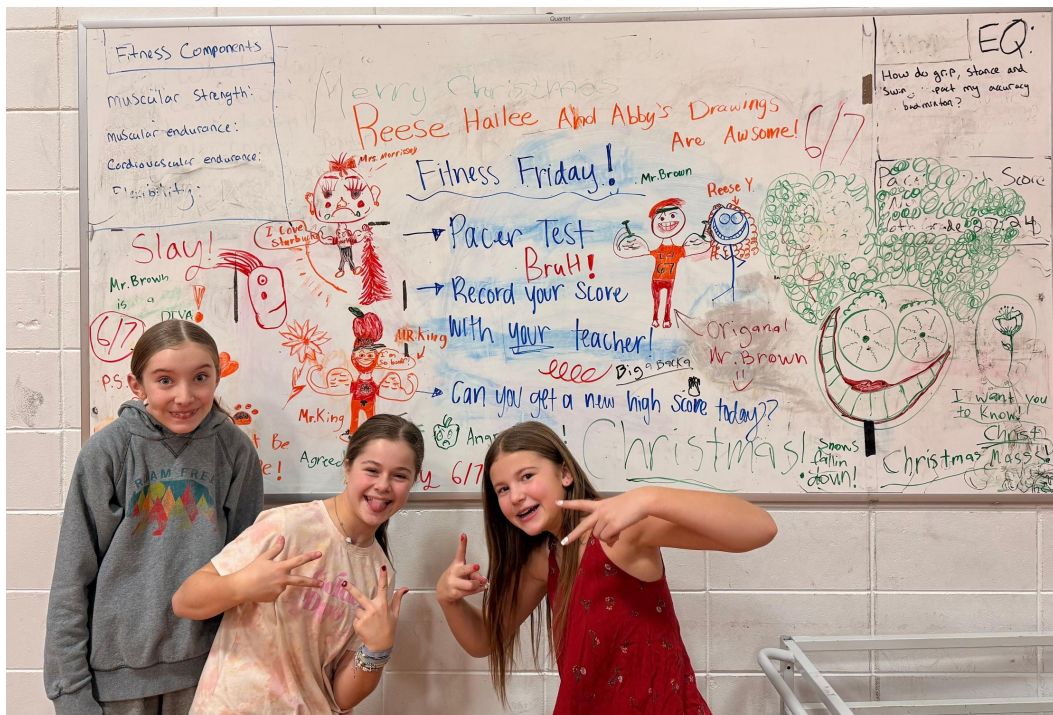 Quartet
Fitness Components
muscular strength:
muscular endurance:
Cardiovascular endurance:
Flexibility:
Merry Christmas
Reese Hailee And Abby's Drawings
Are Awsome!
6/7
EQ:
How do grip, stance and
my accuracy
badminton?
Score
Mrs. Morrisey
Fitness Friday!
Mr. Brown
Reese Y.
I Love
Starbucks
Slay!
Pacer Test
Bruh!
Record your score
with your teacher!
Mr. Brown
is a
DIVA!
6/7
P.S.
MR. King
So buff!
Mr. King
Origanal
Mr. Brown
Big Backa
Can you get a new high score today??
Be
Agreed
6/7
Christmas!
Snows
fallin
down!
I want you
to know!
Christ
Christmas Mass!
I AM FREE